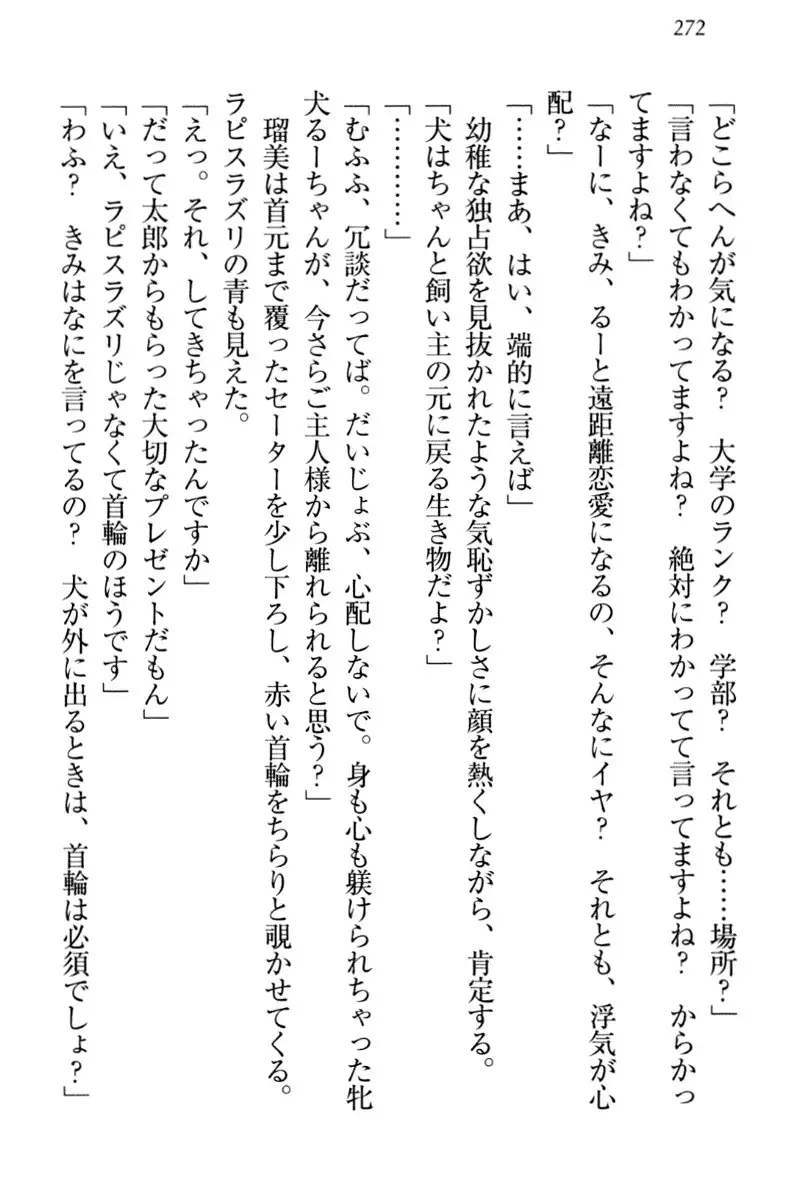 272
「どこらへんが気になる？　大学のランク？　学部？　それとも……場所？」
「言わなくてもわかってますよね？　絶対にわかってて言ってますよね？　からかっ
てますよね？」
「なーに、きみ、るーと遠距離恋愛になるの、そんなにイヤ？　それとも、浮気が心
配？」
「……まあ、はい、端的に言えば」
　幼稚な独占欲を見抜かれたような気恥ずかしさに顔を熱くしながら、肯定する。
「犬はちゃんと飼い主の元に戻る生き物だよ？」
「…………」
「むふふ、冗談だってば。だいじょぶ、心配しないで。身も心も躾けられちゃった牝
犬るーちゃんが、今さらご主人様から離れられると思う？」
　瑠美は首元まで覆ったセーターを少し下ろし、赤い首輪をちらりと覗かせてくる。
ラピスラズリの青も見えた。
「えっ。それ、してきちゃったんですか」
「だって太郎からもらった大切なプレゼントだもん」
「いえ、ラピスラズリじゃなくて首輪のほうです」
「わふ？　きみはなにを言ってるの？　犬が外に出るときは、首輪は必須でしょ？」